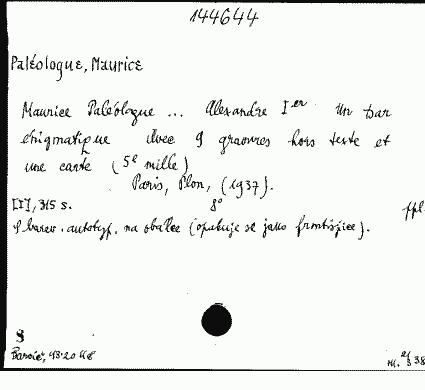 144644
Paléologue, Maurice
Maurice Paléologue ... Alexandre Ier Un tsar
énigmatique Avec 9 gravures hors texte et
une carte (5e mille)
Paris, Plon, (1937).
[I], 315 s. 8° ppl.
1 barev. autotyp. na obálce (opakuje se jako frontispice).
8
43·20 Kč